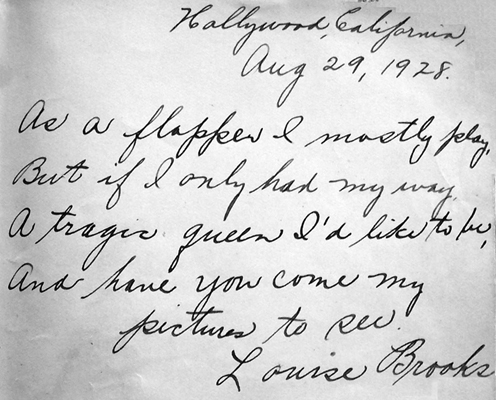 Hollywood, California,
Aug 29, 1928.
As a flapper I mostly play,
But if I only had my way,
A tragic queen I'd like to be,
And have you come my
pictures to see.
Louise Brooks